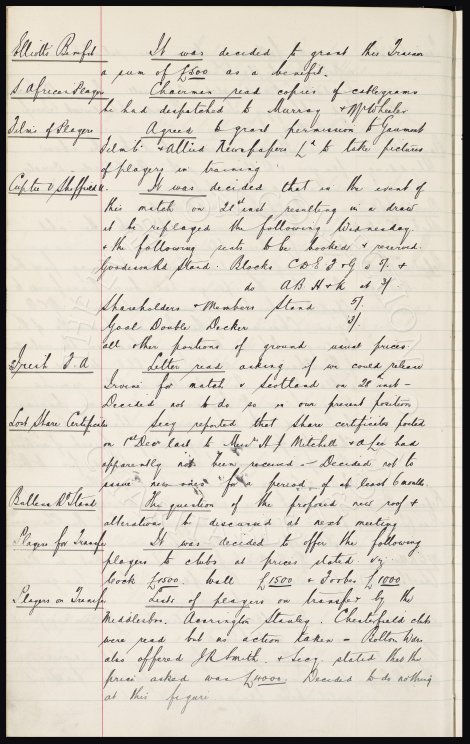 Elliott's Benefit It was decided to grant this Trainer
a sum of £500 as a benefit.
S. African Players Chairman read copies of cablegrams
he had despatched to Murray & McWheeler
Films of Players Agreed to grant permission to Gaumont
Films & Allied Newspapers Ld to take pictures
of players in training
Cuptie v Sheffield U. It was decided that in the event of
this match on 21st inst resulting in a draw
it be replayed the following Wednesday.
& the following seats to be booked & reserved.
Goodison Rd Stand. Blocks C D E F & G @ 5/. &
do A B H & K at 3/.
Shareholders & Members Stand 5/.
Goal Double Decker 3/.
all other portions of ground usual prices.
Irish F. A Letter read asking if we could release
Irvine for match v Scotland on 28th inst -
Decided not to do so in our present position
Lost Share Certificates Secy reported that share certificates posted
on 1st Decr last to Messrs H J Mitchell & A Lee had
apparently not been received - Decided not to
issue new ones for a period of at least 6 months.
Bullens Rd Stand The question of the proposed new roof &
alterations be discussed at next meeting
Players for Transfer It was decided to offer the following
players to clubs at prices stated viz
Cock £1500. Wall £1500 & Forbes £1000
Players on Transfer Lists of players on transfer by the
Middlesbro. Accrington Stanley. Chesterfield clubs
were read but no action taken - Bolton Wdrs
also offered J R Smith. & Secy. stated that the
price asked was £4000. Decided to do nothing
at this figure